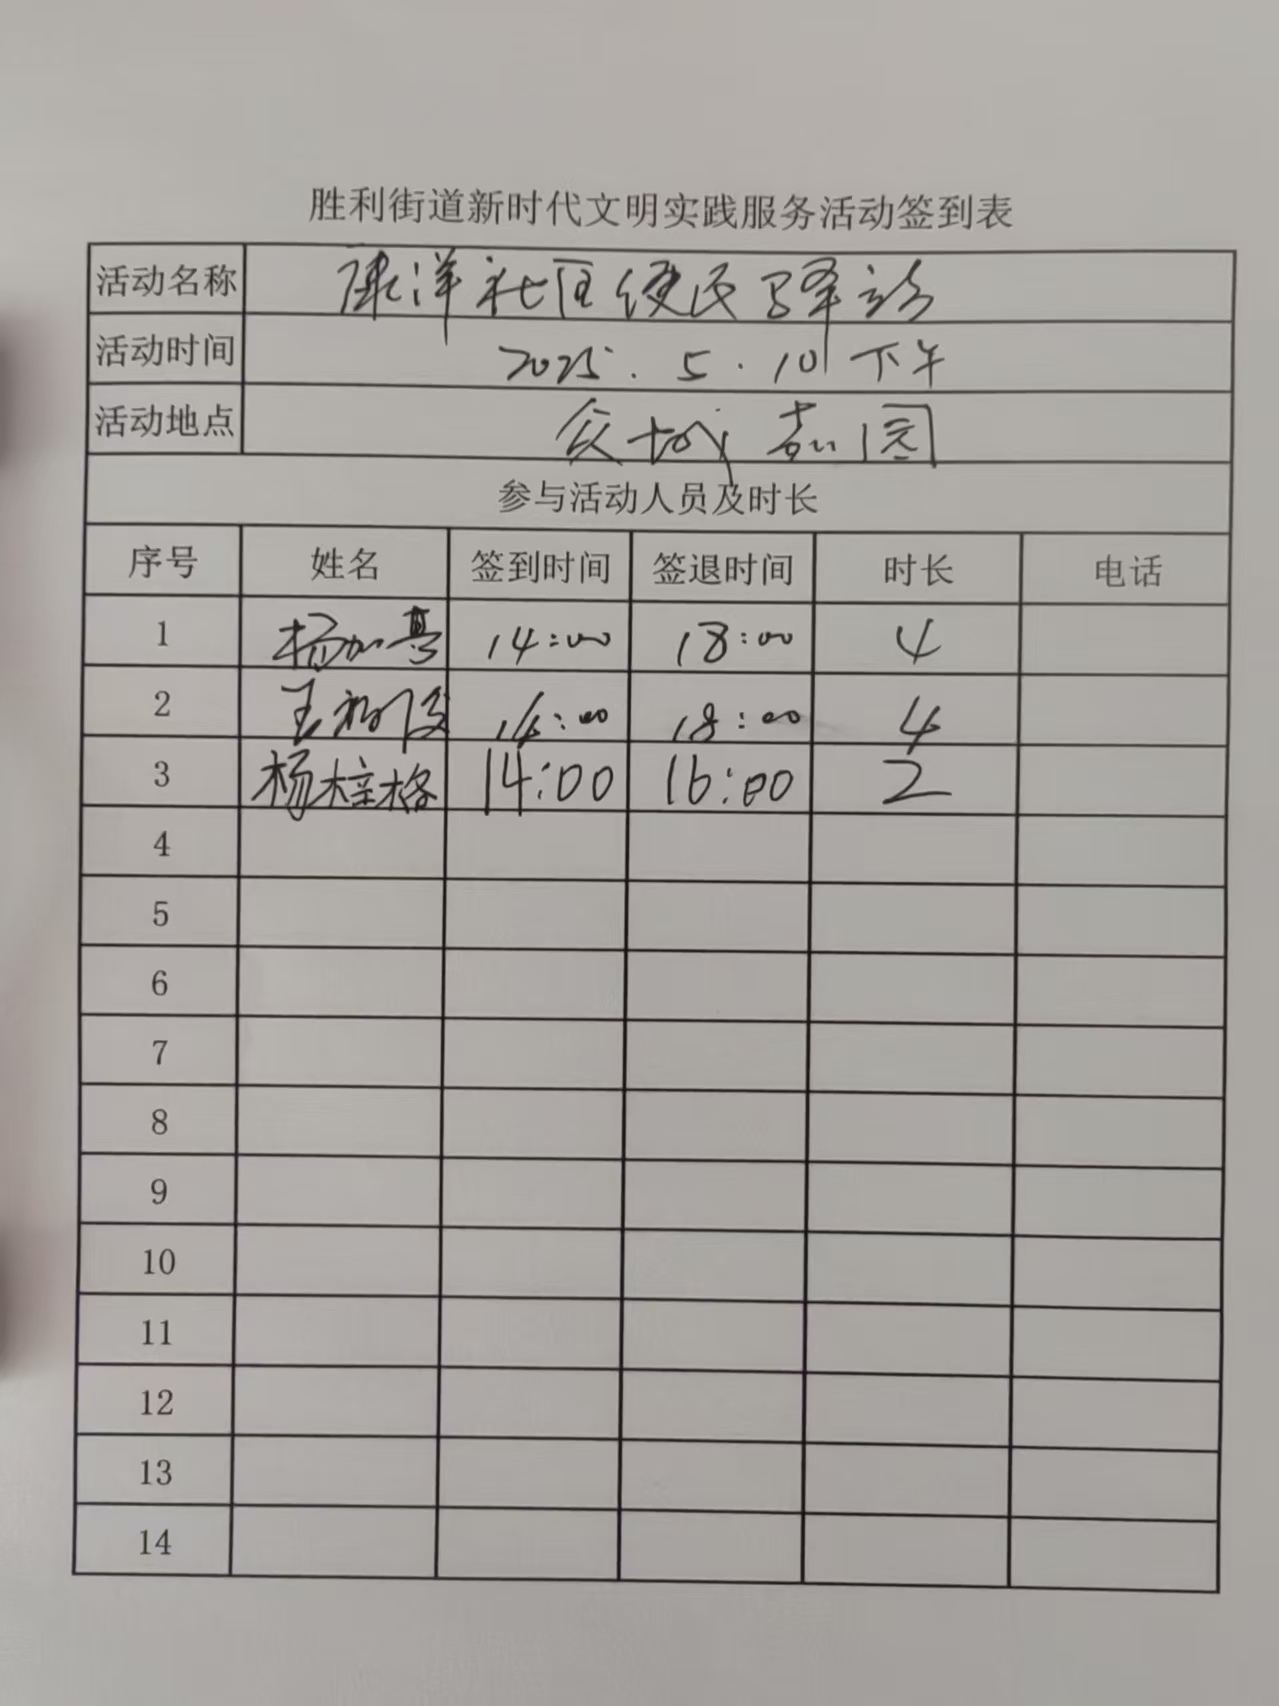 胜利街道新时代文明实践服务活动签到表
活动名称 康洋社区便民驿站
活动时间 2025.5.10 下午
活动地点 众城嘉园
参与活动人员及时长
序号 姓名 签到时间 签退时间 时长 电话
1 杨加 14:00 18:00 4
2 王 14:00 18:00 4
3 杨桂格 14:00 16:00 2
4
5
6
7
8
9
10
11
12
13
14